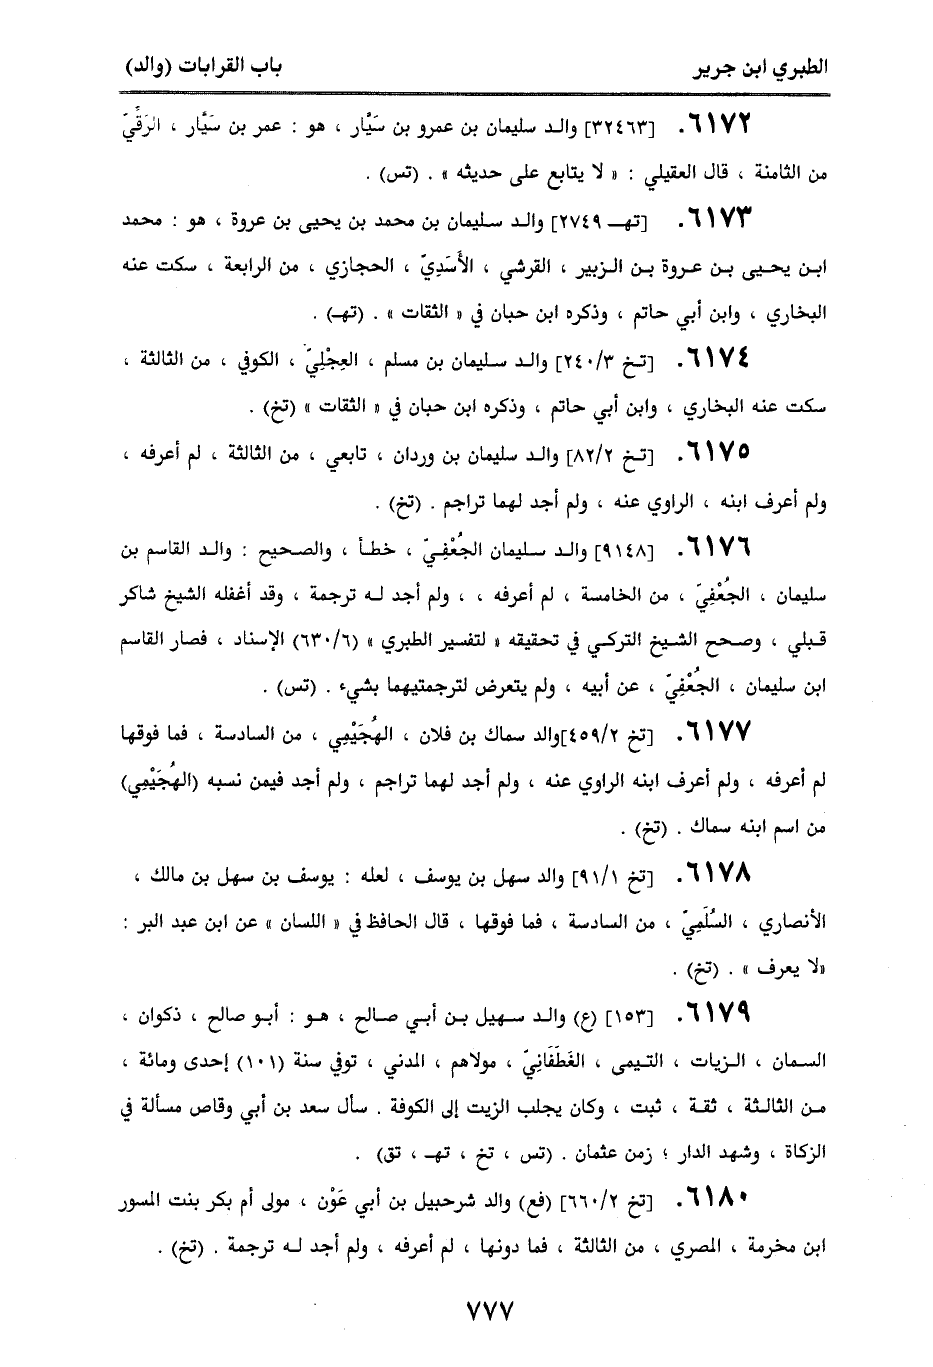 الطبري ابن جرير
باب القرابات (والد)
٦١٧٢. [٣٢٤٦٣] والد سليمان بن عمرو بن سَيَّار ، هو : عمر بن سَيَّار ، الرَقِّيّ
من الثامنة ، قال العقيلي : « لا يتابع على حديثه » . (تس) .
٦١٧٣. [تهـ ٢٧٤٩] والد سليمان بن محمد بن يحيى بن عروة ، هو : محمد
ابن يحيى بن عروة بن الزبير ، القرشي ، الأَسَدِيّ ، الحجازي ، من الرابعة ، سكت عنه
البخاري ، وابن أبي حاتم ، وذكره ابن حبان في « الثقات » . (تهـ) .
٦١٧٤. [تخ ٢٤٠/٣] والد سليمان بن مسلم ، العِجْلِيّ ، الكوفي ، من الثالثة ،
سكت عنه البخاري ، وابن أبي حاتم ، وذكره ابن حبان في « الثقات » (تخ) .
٦١٧٥. [تخ ٨٢/٢] والد سليمان بن وردان ، تابعي ، من الثالثة ، لم أعرفه ،
ولم أعرف ابنه ، الراوي عنه ، ولم أجد لهما تراجم . (تخ) .
٦١٧٦. [٩١٤٨] والد سليمان الجُعْفِيّ ، خطأ ، والصحيح : والد القاسم بن
سليمان ، الجُعْفِيّ ، من الخامسة ، لم أعرفه ، ، ولم أجد له ترجمة ، وقد أغفله الشيخ شاكر
قبلي ، وصحح الشيخ التركي في تحقيقه « لتفسير الطبري » (٦٣٠/٦) الإسناد ، فصار القاسم
ابن سليمان ، الجُعْفِيّ ، عن أبيه ، ولم يتعرض لترجمتيهما بشيء . (تس) .
٦١٧٧. [تخ ٤٥٩/٢]والد سماك بن فلان ، الهُجَيْمِي ، من السادسة ، فما فوقها
لم أعرفه ، ولم أعرف ابنه الراوي عنه ، ولم أجد لهما تراجم ، ولم أجد فيمن نسبه (الهُجَيْمِي)
من اسم ابنه سماك . (تخ) .
٦١٧٨. [تخ ٩١/١] والد سهل بن يوسف ، لعله : يوسف بن سهل بن مالك ،
الأنصاري ، السُلَمِيّ ، من السادسة ، فما فوقها ، قال الحافظ في « اللسان » عن ابن عبد البر :
«لا يعرف » . (تخ) .
٦١٧٩. [١٥٣] (ع) والد سهيل بن أبي صالح ، هو : أبو صالح ، ذكوان ،
السمان ، الزيات ، التيمى ، الغَطَفَانِيّ ، مولاهم ، المدني ، توفي سنة (١٠١) إحدى ومائة ،
من الثالثة ، ثقة ، ثبت ، وكان يجلب الزيت إلى الكوفة . سأل سعد بن أبي وقاص مسألة في
الزكاة ، وشهد الدار ؛ زمن عثمان . (تس ، تخ ، تهـ ، تق) .
٦١٨٠. [تخ ٦٦٠/٢] (فع) والد شرحبيل بن أبي عَوْن ، مولى أم بكر بنت المسور
ابن مخرمة ، المصري ، من الثالثة ، فما دونها ، لم أعرفه ، ولم أجد له ترجمة . (تخ) .
٧٧٧